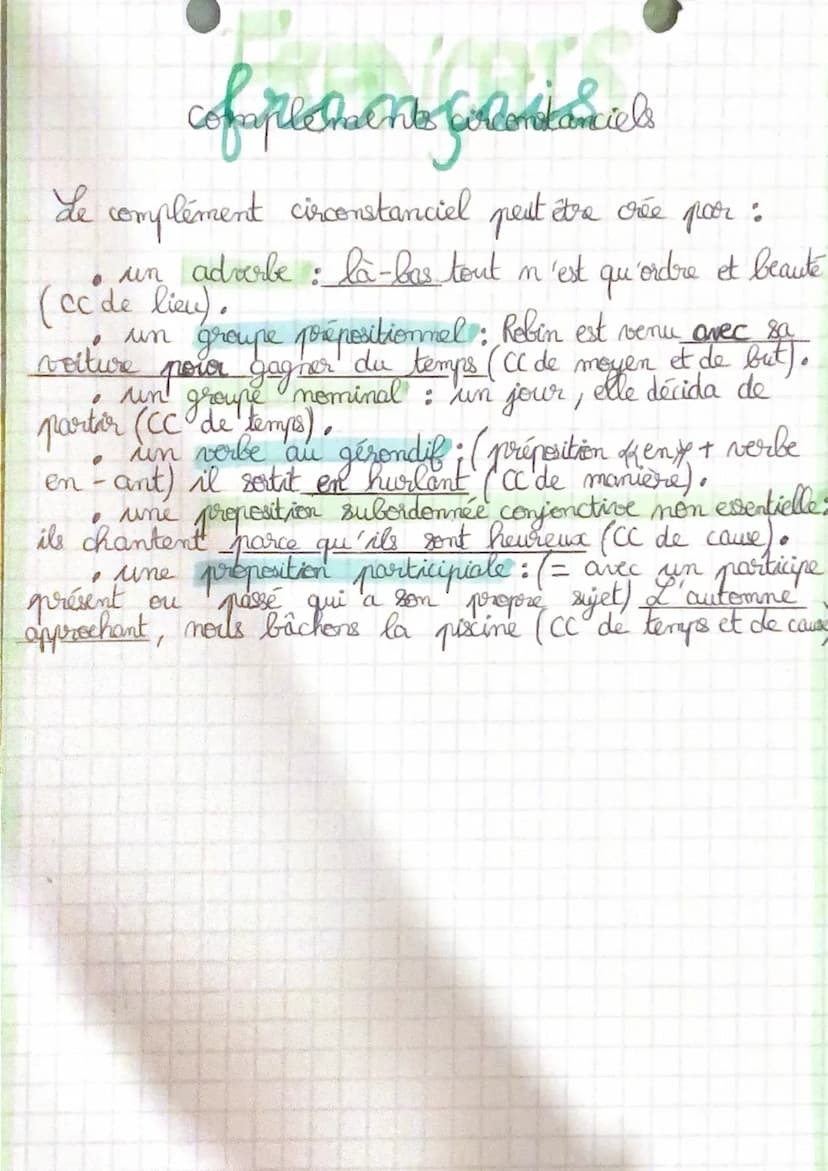 Français
français
compléments circonstanciels
Le complément circonstanciel peut être crée par :
• un adverbe : là-bas tout n'est qu'ordre et beauté
(CC de lieu).
• un groupe prépositionnel : Robin est venu avec sa
voiture pour gagner du temps (CC de moyen et de but).
• un groupe nominal : un jour, elle décida de
partir (CC de temps).
• un verbe au gérondif : (préposition «en» + verbe
en -ant) il sortit en hurlant (CC de manière).
• une proposition subordonnée conjonctive non essentielle :
ils chantent parce qu'ils sont heureux (CC de cause).
• une proposition participiale : (= avec un participe
présent ou passé qui a son propre sujet) L'automne
approchant, nous bâchons la piscine (CC de temps et de cause)